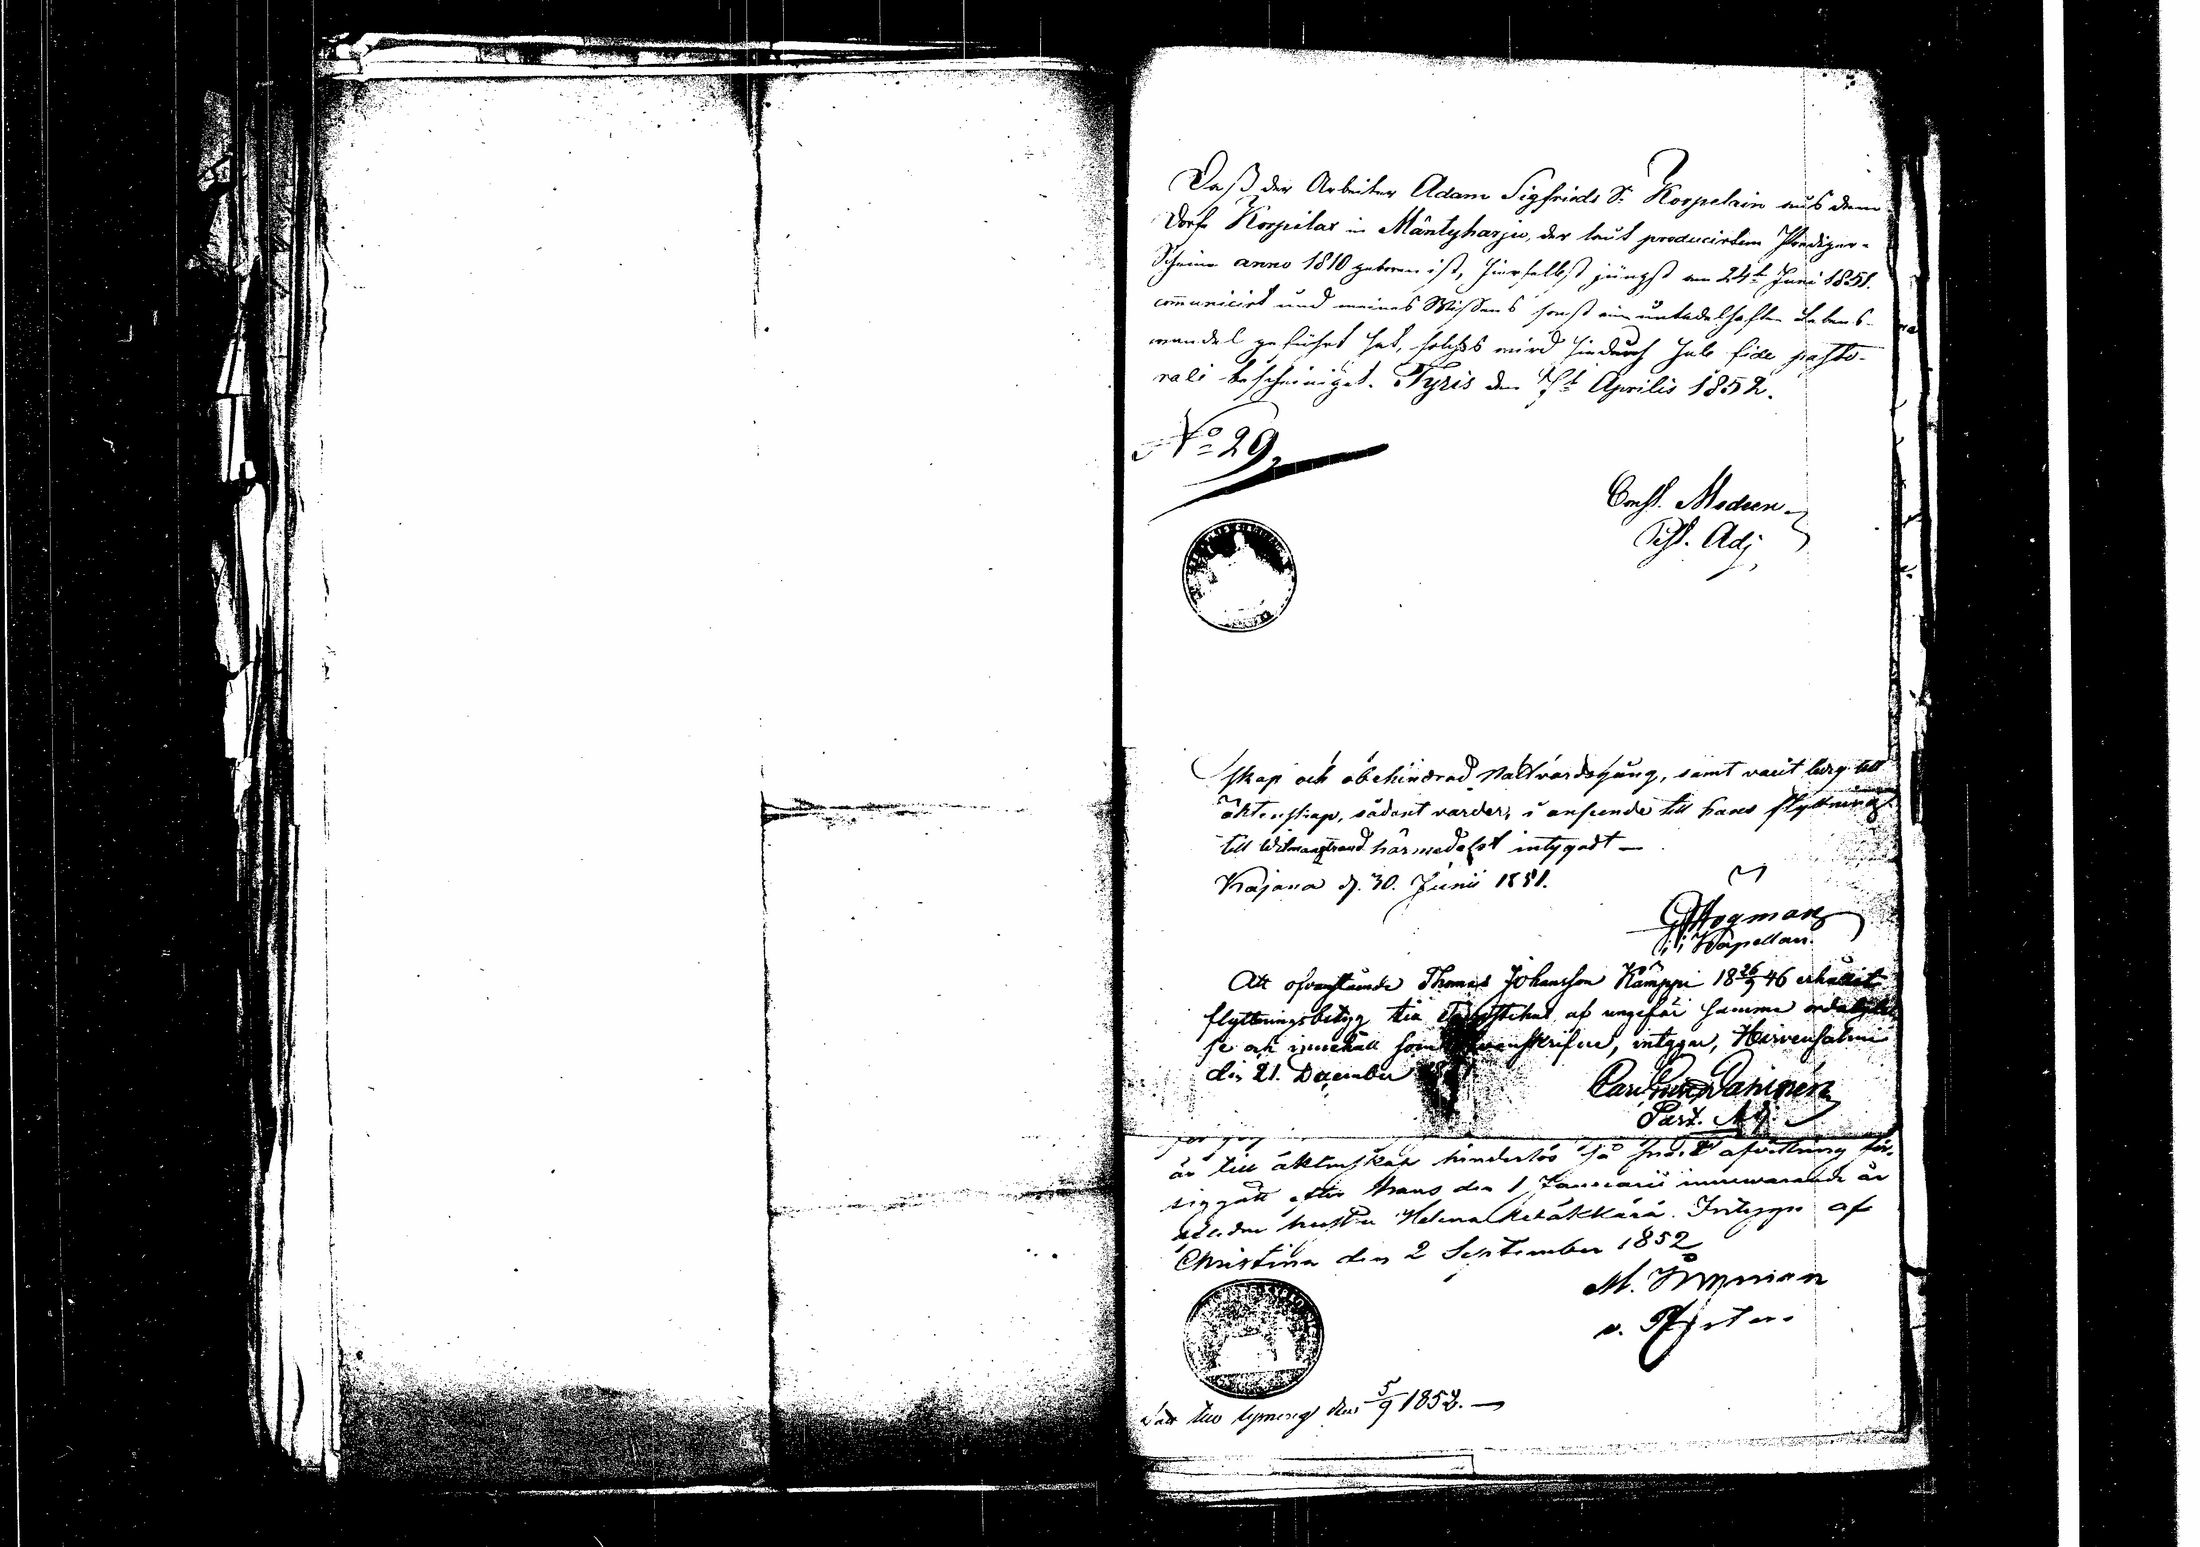 Daß der Arbeiter Adam Sigfrieds S. Korpelain aus dem
Dorfe Korpilax in Mäntyharju, der laut producirtem Prediger-
Scheine anno 1810 geboren ist, hierselbst jüngst am 24t Juni 1851.
com̄unicirt und meines Wissens sonst ein untadelhaften Lebens-
wandel geführt hat, solches wird hiedurch sub fide pasto-
rali bescheiniget. Tyris den 7t Aprilis 1852.
No 29,
Const. Modeen
Past. Adj.
skap och obehindrad nattvardsgång, samt varit ledig till
äktenskap, sådant varder, i anseende till hans flyttning
till Wilmanstrand härmedelst intygadt —
Kajana d. 30. Junii 1851.
Hogman
Kapellan.
Att ofvanstående Thomas Johansson Kämppi 18 26/9 46 erhållit
flyttningsbetyg till af ungefär samma ordalydel-
se och innehåll som ofvanskrifne, intygar, Hirvensalmi
den 21. December
Carl Daninen
Past. Adj.
är till äktenskap hinderlös så snart afvittring för-
siggått efter hans den 1 Januarii innewarande år
aflidne hustru Helena Intygar af
Christina den 2 September 1852
M.
v. Pastor.
den 5/9 1852. —